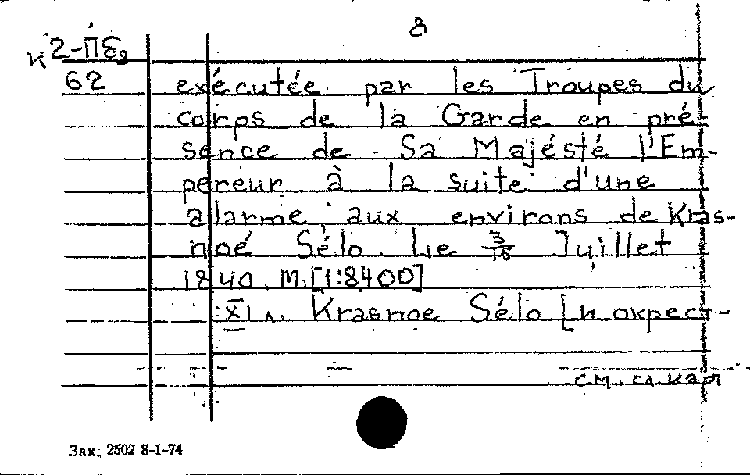 8
к 2-Пε2
62 exécutée par les Troupes du
corps de la Garde en pré-
sence de Sa Majésté l'Em-
pereur à la suite d'une
allarme, aux environs de Kras-
noé Sélo. Le 3/15 Juillet
1840. М. [1:8400]
XI л. Krasnoe Sélo [и окрест-
см. сл. кар
Зак. 2502 8-1-74